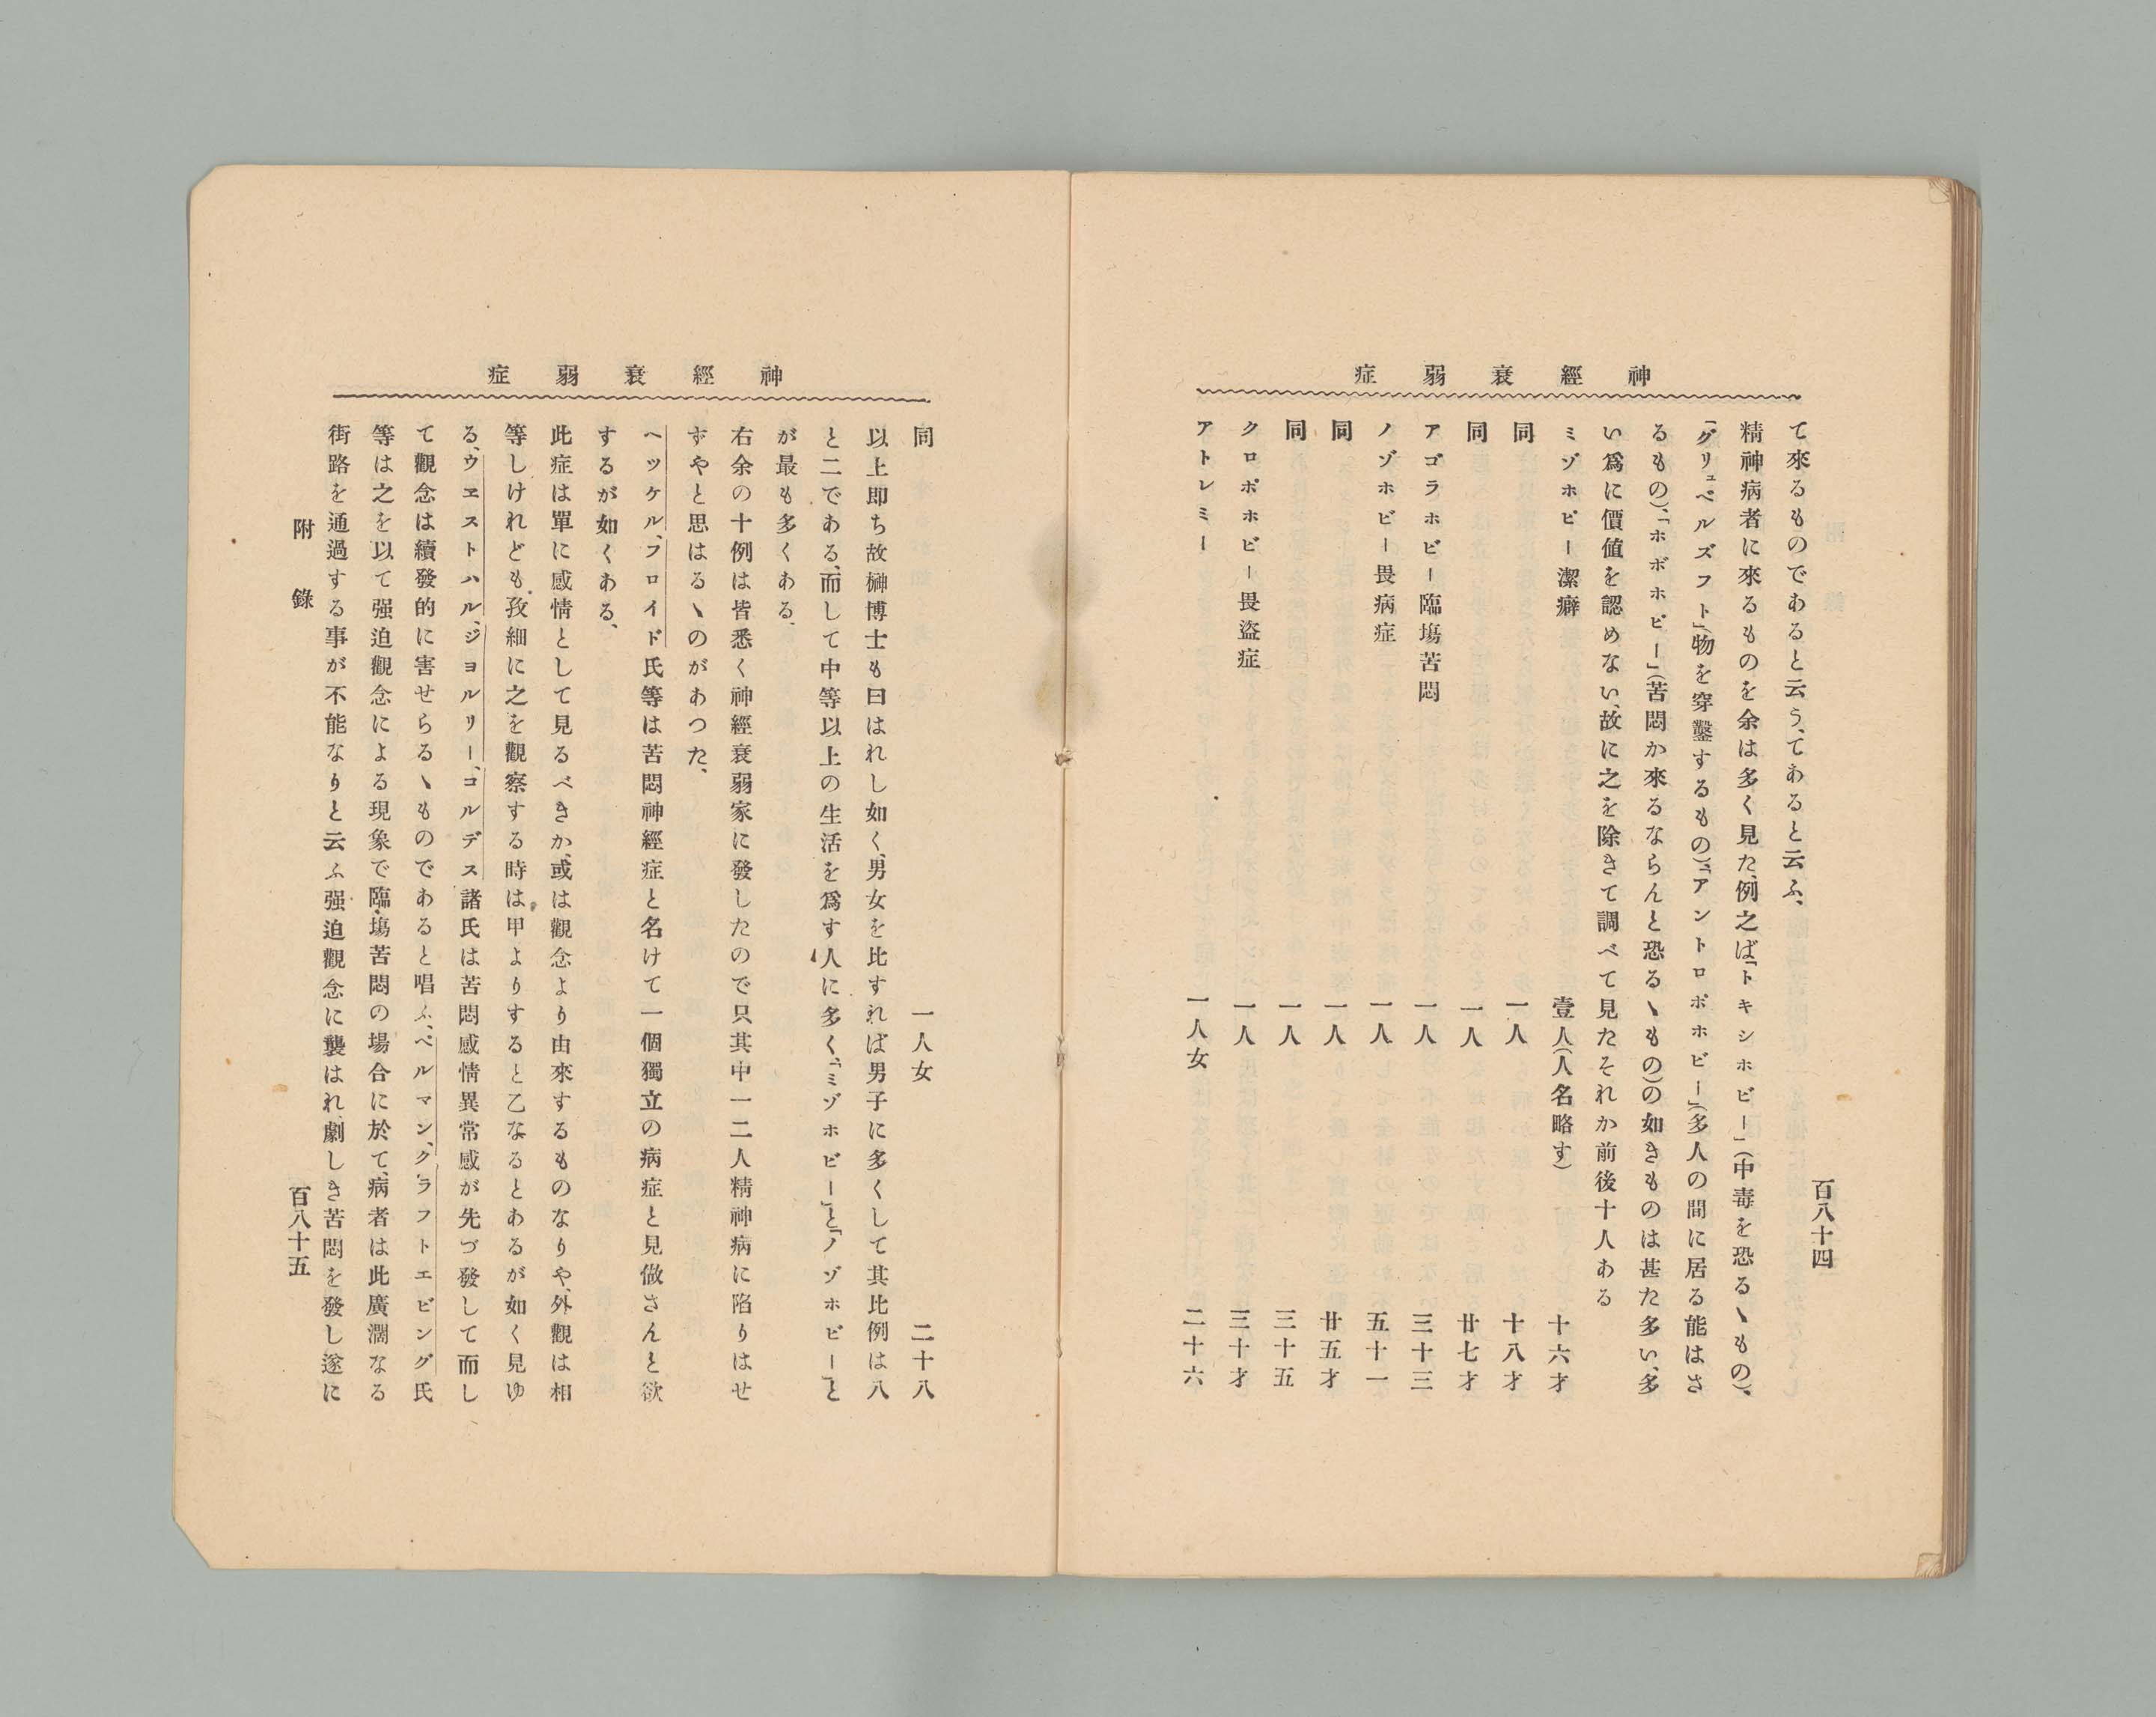 神經衰弱症
百八十四
て來るものであると云う、てあると云ふ、
精神病者に來るものを余は多く見た、例之ば「トキシホビー」(中毒を恐るヽもの)、
「グリュベルズフト」(物を穿鑿するもの)、「アントロポホビー」(多人の間に居る能はさ
るもの)、「ホボホビー」(苦悶か來るならんと恐るヽもの)の如きものは甚た多い、多
い爲に價値を認めない、故に之を除きて調べて見たそれか前後十人ある
ミゾホビー潔癖 壹人(人名略す) 十六才
同 一人 十八才
同 一人 廿七才
アゴラホビー臨塲苦悶 一人 三十三
ノゾホビー畏病症 一人 五十一
同 一人 廿五才
同 一人 三十五
クロポホビー畏盜症 一人 三十才
アトレミー 一人女 二十六
神經衰弱症
同 一人女 二十八
以上即ち故榊博士も曰はれし如く、男女を比すれば男子に多くして其比例は八
と二である、而して中等以上の生活を爲す人に多く、「ミゾホビー」と「ノゾホビー」と
が最も多くある、
右余の十例は皆悉く神經衰弱家に發したので只其中一二人精神病に陷りはせ
ずやと思はるヽのがあつた、
ヘッケル、フロイド氏等は苦悶神經症と名けて一個獨立の病症と見做さんと欲
するが如くある、
此症は單に感情として見るべきか、或は觀念より由來するものなりや、外觀は相
等しけれども孜細に之を觀察する時は甲よりすると乙なるとあるが如く見ゆ
る、ウヱストハル、ジヨルリー、コルデス諸氏は苦悶感情異常感が先づ發して而し
て觀念は續發的に害せらるヽものであると唱ふ、ベルマン、クラフトエビング氏
等は之を以て强迫觀念による現象で臨塲苦悶の場合に於て、病者は此廣濶なる
街路を通過する事が不能なりと云ふ强迫觀念に襲はれ、劇しき苦悶を發し遂に
附錄
百八十五